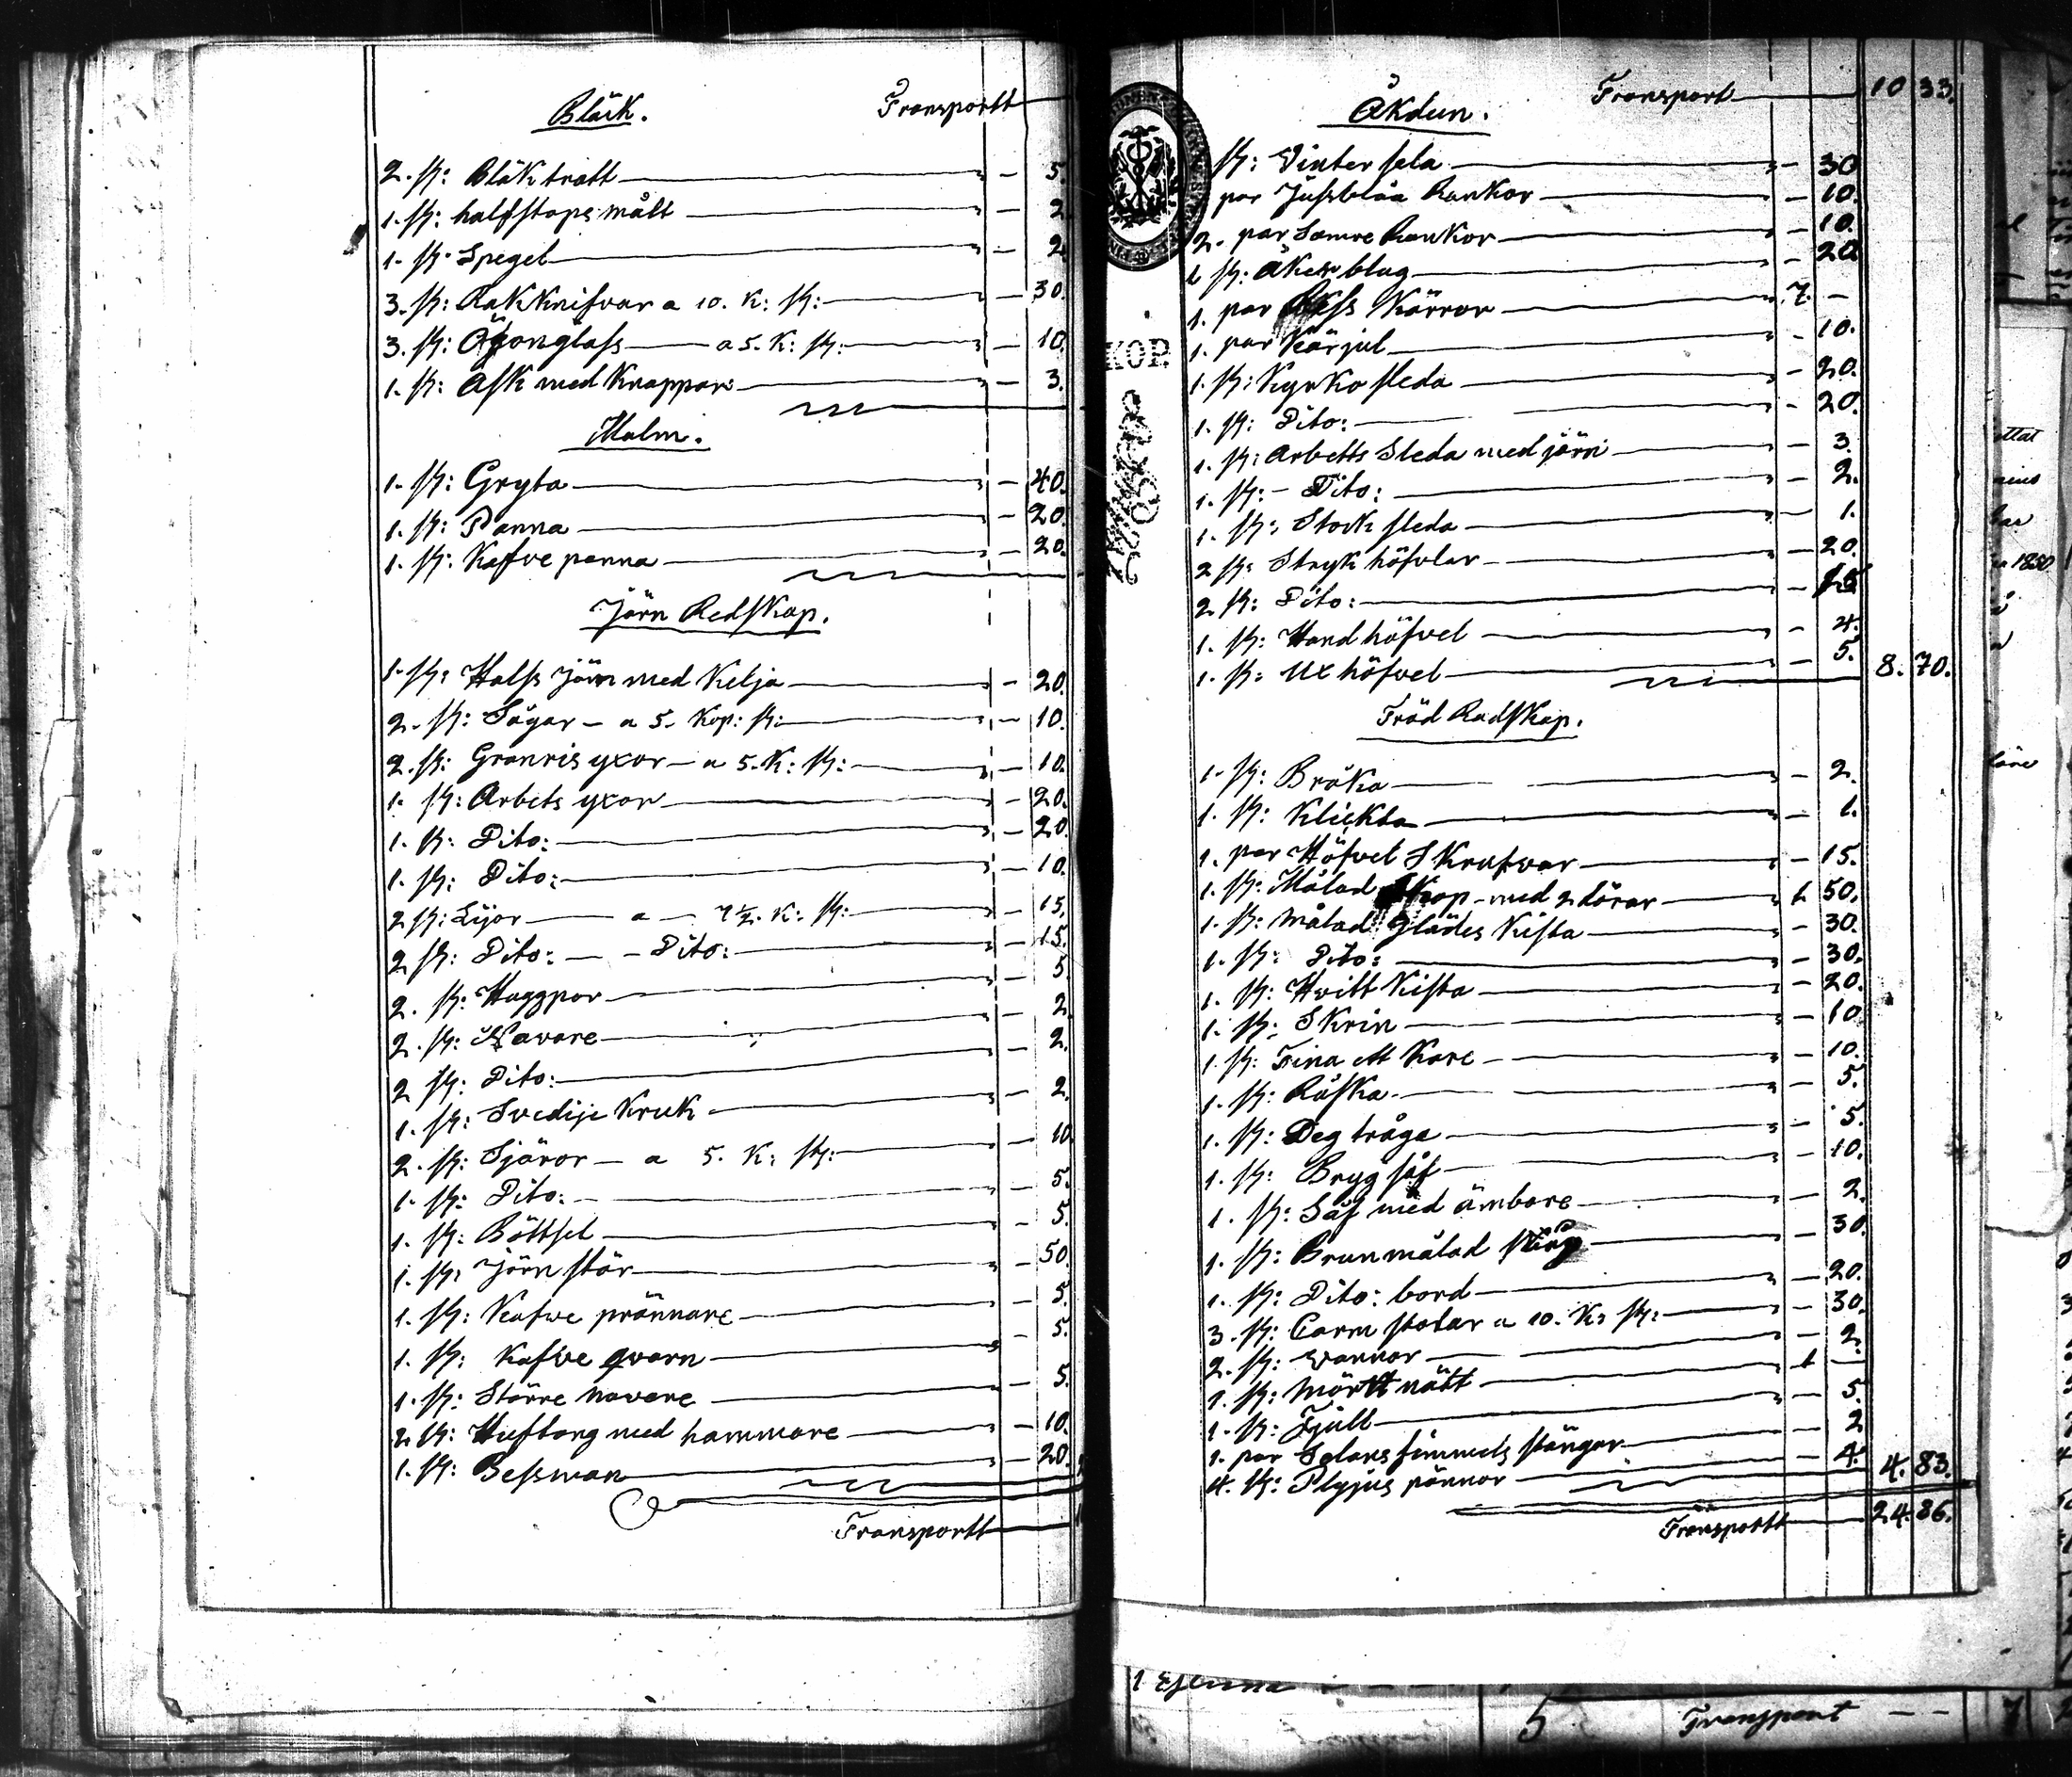 Bläck. Transportt
2. st: Bläk tratt — 5.
1. st: halfstops mått — 2
1. st. Spegel — 2
3. st: Rakknifvar a 10. K: st: — 30.
3. st: Ögonglass a 5. K: st: — 10.
1. st: Ask med Knappar — 3.
Malm.
1. st: Gryta — 40.
1. st: Panna — 20.
1. st: Kaffve panna — 20.
Jörn Redskap.
1. st: Halss jörn med Kelja — 20.
2. st: Sågar — a 5. Kop: st: — 10.
2. st: Granris yxor — a 5. K: st: — 10.
1. st: Arbets yxor — 20.
1. st: Dito: — 20.
1. st: Dito: — 10.
2 st: Lijor — a — 7½. K: st: — 15.
2 st: Dito: — Dito: — 15.
2. st: Huggpor — 5
2. st: Navare — 2
2 st: Dito: — 2.
1. st: Svedije Kruk — 2.
2. st: Sjäror — a 5. K: st: — 10
1. st: Dito: — 5.
1. st: Böttsel — 5.
1. st: Jörn stör — 50.
1. st: Kafwe prännare — 5.
1. st: Kafwe qvarn — 5.
1. st: Större navare — 5.
2 st: Huftong med hammare — 10.
1. st: Bessman — 20.
Transportt
Åkdun. Transport 10 33.
st: Vinter sela — 30
par Jussblåa Rankor — 10.
2. par Samre Rankor — 10.
1 st: Åker blug — 20
1. par Kärror 7. —
1. par Kärjul — 10.
1. st: Kyrko sleda — 20.
1. st: Dito: — 20.
1. st: Arbetts Sleda med jörn — 3
1. st: — Dito: — 2.
1. st: Stock sleda — 1.
2 st: Stryk höfvlar — 20.
2 st: Dito: — 15
1. st: Hand höfvel — 4.
1. st: Ux höfvel — 5. 8. 70.
Träd Radskap.
1. st: Bråka — 2.
1. st: Klickta — 1.
1. par Höfvel Skrufvar — 15.
1. st: Målad Skap med 2 dörar 1 50.
1. st: Målad Glädes Kista — 30.
1. st: Dito: — 30.
1. st: Hvitt Kista — 20.
1. st: Skrin — 10
1. st: Tina ett Kare — 10.
1. st: Råska — 5.
1. st: Deg tråga — 5.
1. st: Bryg såf — 10.
1. st: Såf med ämbare — 2.
1. st: Brunmålad — 30.
1. st: Dito: bord — 20.
3. st: Carm stolar a 10. K: st: — 30.
2. st: wannor — 2.
1. st: Mörtt nätt 1 —
1. st: Fjäll — 5.
1. par Solans fimmels stängar — 2
4. st: Plyjus pännor — 4. 4. 83.
Transportt 24. 86.
KOP.
5 Transport — —